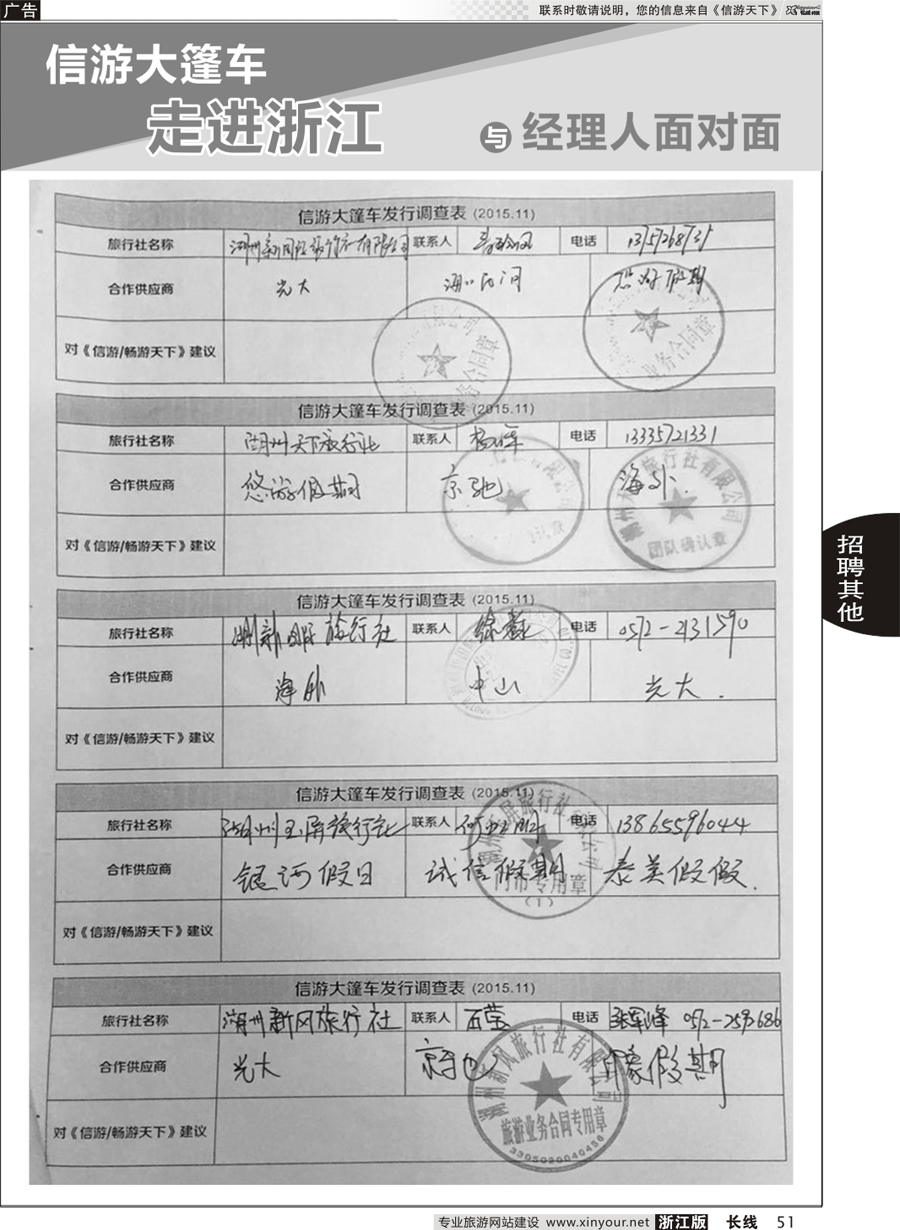 广告
联系时敬请说明，您的信息来自《信游天下》
信游大篷车
走进浙江 与 经理人面对面
信游大篷车发行调查表 (2015.11)
旅行社名称 联系人 电话
合作供应商 光大 假期
业务合同章
对《信游/畅游天下》建议
信游大篷车发行调查表 (2015.11)
旅行社名称 湖州天下旅行社 联系人 电话 13335721331
合作供应商 悠游假期 京驰 海外
旅行社有限公司
团队确认章
对《信游/畅游天下》建议
信游大篷车发行调查表 (2015.11)
旅行社名称 旅行社 联系人 电话 0572-2131590
合作供应商 海外 中山 光大
对《信游/畅游天下》建议
信游大篷车发行调查表 (2015.11)
旅行社名称 湖州玉屏旅行社 联系人 电话 13865596044
合作供应商 银河假日 诚信假期 泰美假假
门市专用章
(1)
对《信游/畅游天下》建议
信游大篷车发行调查表 (2015.11)
旅行社名称 湖州新风旅行社 联系人 石莹 电话 张军峰 0572-2593686
合作供应商 光大 京驰 印象假期
湖州新风旅行社有限公司
旅游业务合同专用章
3305020040456
对《信游/畅游天下》建议
招聘其他
专业旅游网站建设 www.xinyour.net 浙江版 长线 51